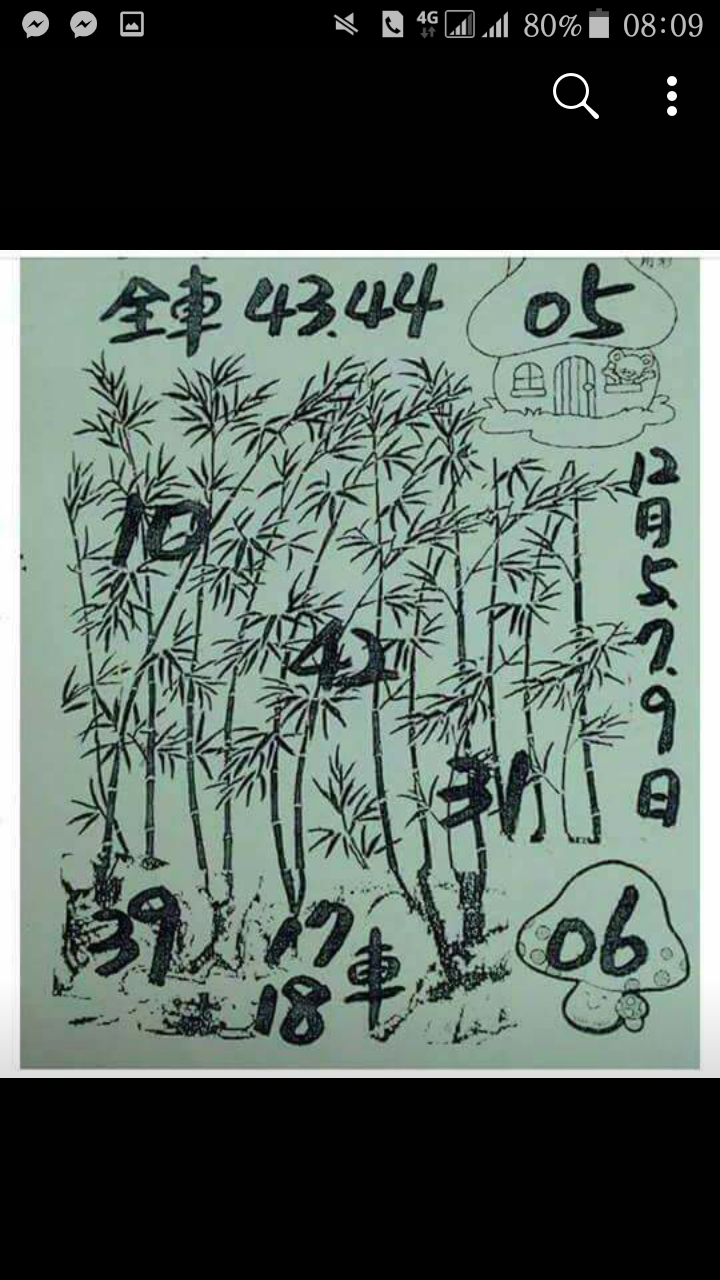 4G 80% 08:09
全車 43.44
05
12月5.7.9日
10
42
31
39
17
18
車
06